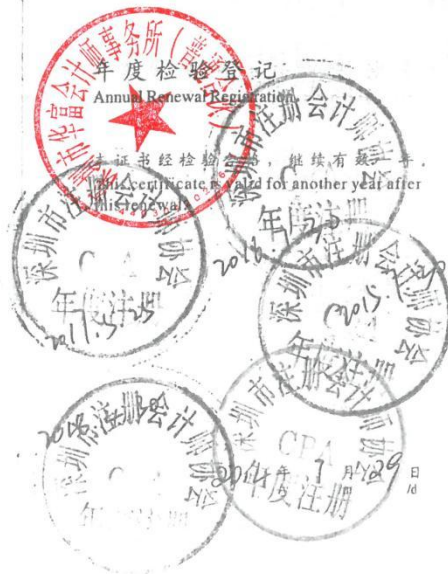 年度检验登记
Annual Renewal Registration
本证书经检验合格，继续有效一年。
This certificate is valid for another year after
this renewal.
华富会计师事务所（普通合伙）
深圳市注册会计师协会
年度注册
深圳市注册会计师协会
CPA
年度注册
2017.5.25
深圳市注册会计师协会
2015
年度注册
深圳市注册会计师协会
深圳市注册会计师协会
CPA
年度注册
2014年7月29日